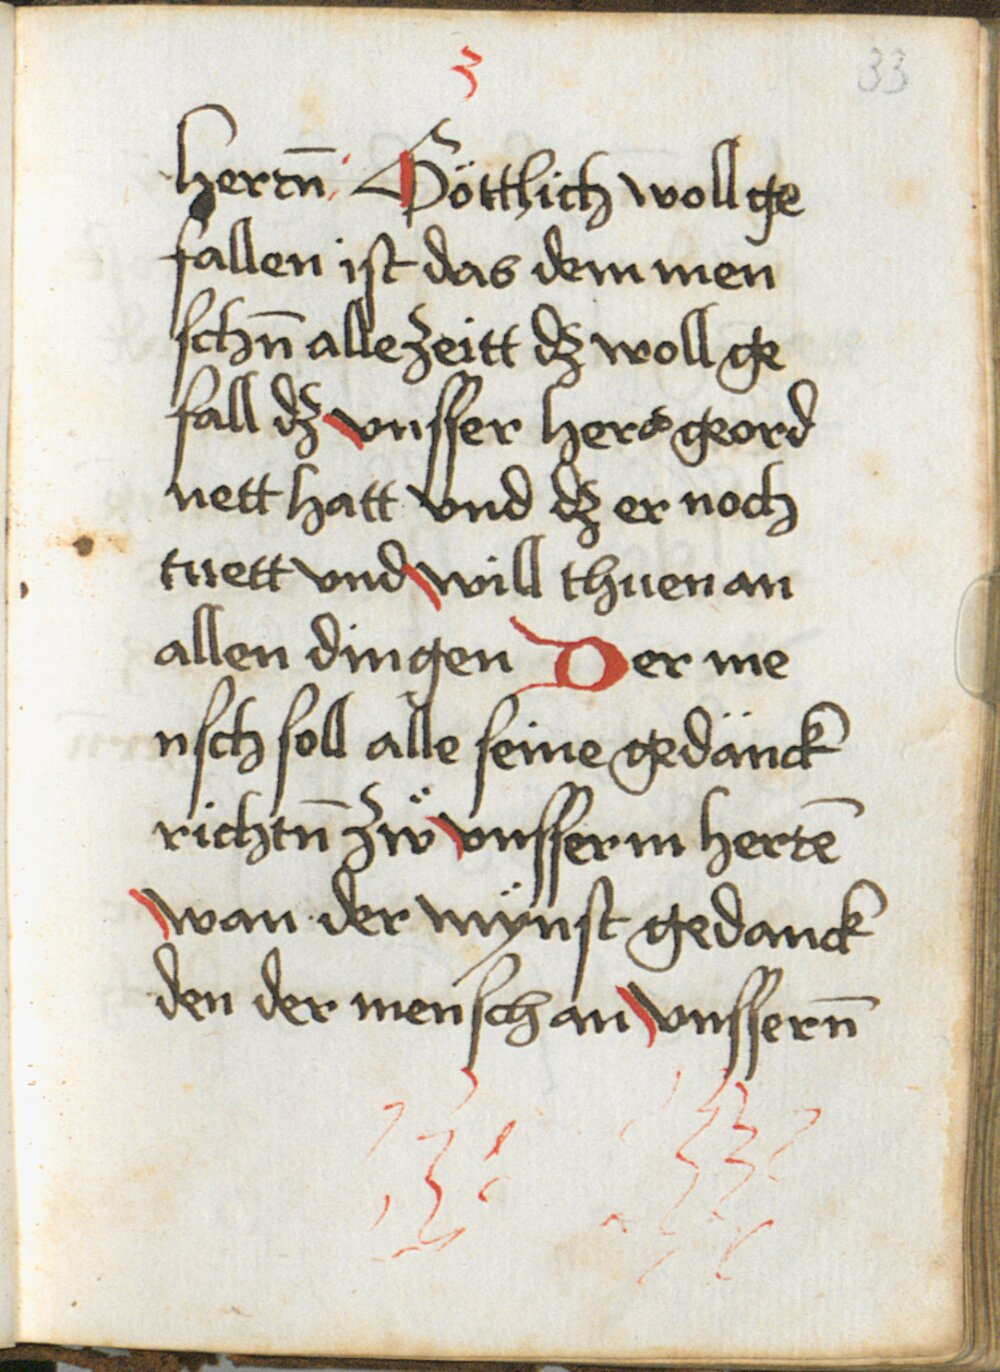 33
herrn̄ Göttlich woll ge
fallen ist das dem men
schn̄ alle zeitt dz woll ge
fall dz vnsser herr geord
nett hatt vnd dz er noch
tuett vnd will thuen an
allen dingen Der me
nsch soll alle seine gedänck
richtn̄ zẅ vnsserm herrē
wan der mÿnst gedanck
den der mensch an vnssern̄